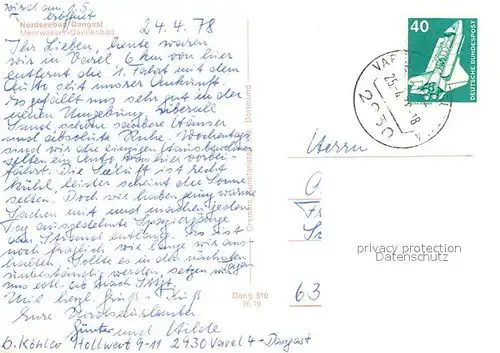 wird am 1.5.
eröffnet
24.4.78
Nordseebad Dangast
Meerwasser-Quellenbad
Ihr Lieben, heute waren
wir in Varel 6 km von hier
entfernt die 1. Fahrt mit dem
Auto seit unserer Ankunft.
Es gefällt uns sehr gut in der
neuen Umgebung überall
Sand schöne saubere Häuser
und absolute Ruhe. Wochentags
sind wir die einzigen Hausbewohner
selten ein Auto was hier vorbei-
fährt. Die Seeluft ist recht
kühl leider scheint die Sonne
selten. Doch wir haben genug warme
Sachen mit und machen jeden
Tag ausgedehnte Spaziergänge
am Strand entlang. Es ist
noch fraglich wie lange wir aus-
halten. Sollte es in den nächsten
Tagen
unbeständig werden, setzen wir
uns evtl. ab nach Stgt.
Mit herzl. Gruß + Kuß
Eure Nordseeurlauber
Günter und Hilde
b. Köhler Hollwert 9-11 2930 Varel 4 - Dangast
Dang 510
40
DEUTSCHE BUNDESPOST
VAR
2930
Herrn
63
privacy protection
Datenschutz